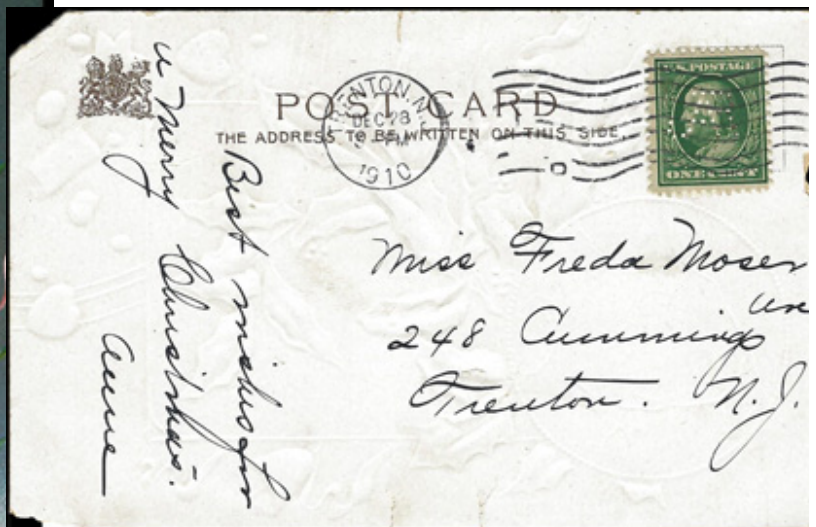 POST CARD
THE ADDRESS TO BE WRITTEN ON THIS SIDE.
TRENTON, N.J.
DEC 28
PM
1910
U.S. POSTAGE
ONE CENT
Best wishes for
a Merry Christmas.
Anne
Miss Freda Moser
248 Cummings Ave
Trenton. N.J.